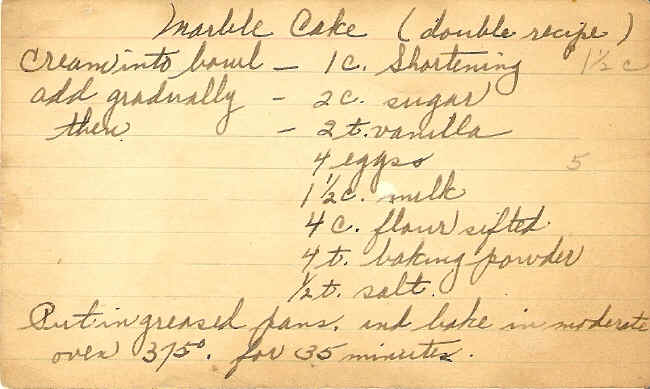 Marble Cake (double recipe)
Cream into bowl - 1 c. Shortening 1½ c
add gradually - 2 c. sugar
then - 2 t. vanilla
4 eggs 5
1½ c. milk
4 c. flour sifted
4 t. baking powder
½ t. salt.
Put in greased pans. and bake in moderate
oven 375°. for 35 minutes.